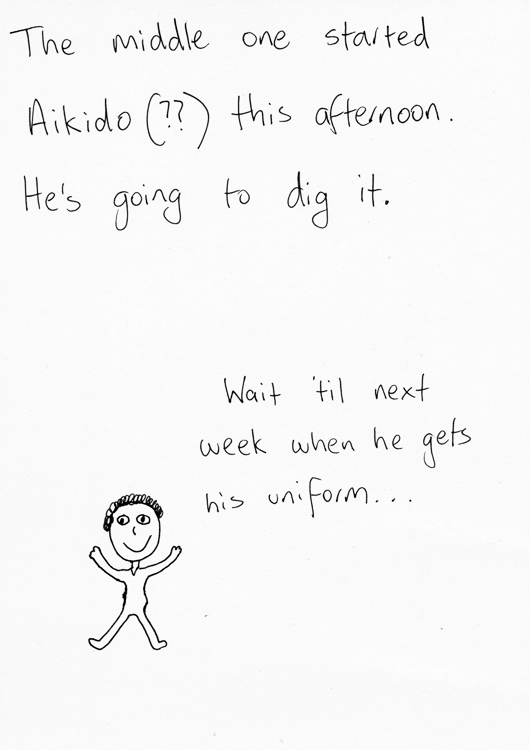 The middle one started
Aikido (??) this afternoon.
He's going to dig it.
Wait 'til next
week when he gets
his uniform...